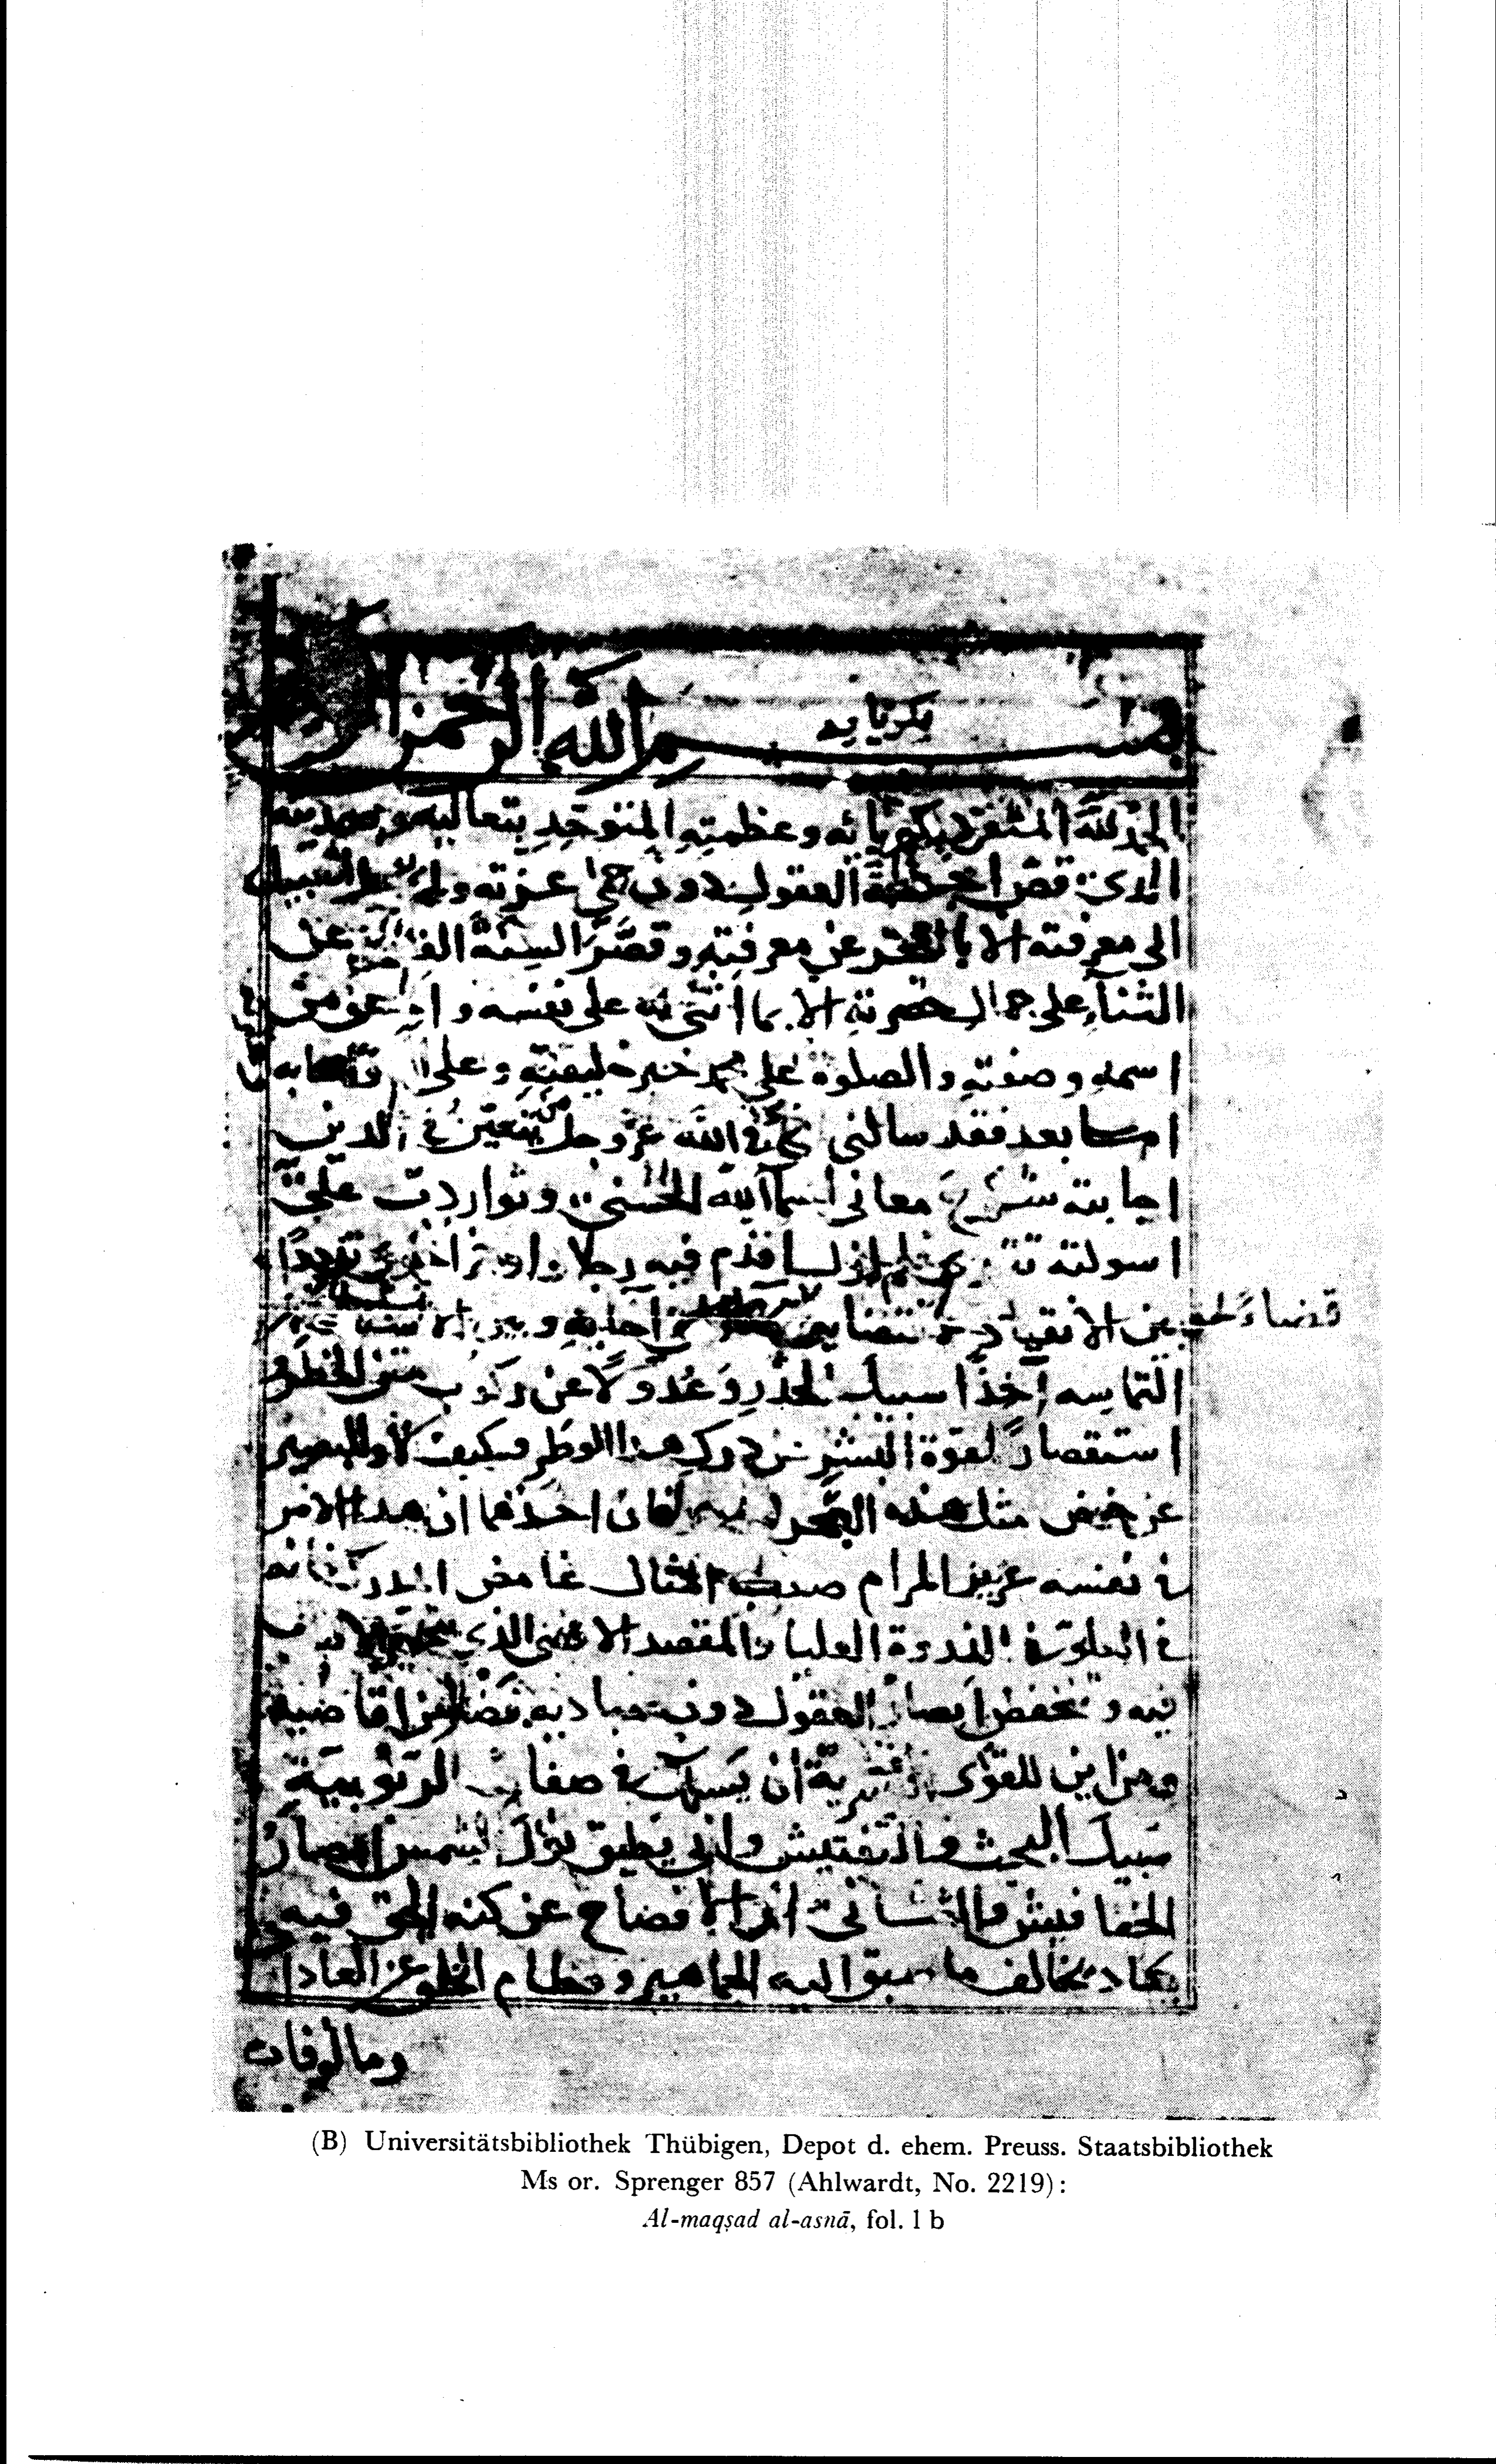 بسم الله الرحمن
بكريايه
الحمد لله المتفرد بكبريائه وعظمته المتوحد بتعاليه وصمديته
الذي قص اجنحة العقول دون حمى عزته ولم السبيل
الى معرفته الا بالعجز عن معرفته وقصر السنة عن
الثناء على جمال حضرته الا بما اثنى به على نفسه و من
اسمه وصفته والصلوة على محمد خير خليقته وعلى
اما بعد فقد سالني في الله عز وجل يتعين في الدين
اجابته شرح معاني اسما الله الحسنى وتواردت علي
اسولته فلم ازل اقدم فيه رجلا اخرى ترددا
بين الانقياد
قضاء لحق
التماسه اخذا سبيل الحذر وعدولا عن ركوب متن الخطر و
استقصارا لقوة البشر درك هذا الوطر وكيف لا وللبصير
عن خوض مثل هذه احدهما ان هذا الامر
في نفسه عزيز المرام صعب المنال غامض المدرك فانه
في العلو في الذروة العليا والمقصد الاقصى الذي
فيه وتنخفض ابصار العقول دون مباديه فضلا عن اقاصيه
ومن اين للقوى البشرية ان يسلك في صفات الربوبية
سبيل البحث والتفتيش وانى يطيق نور الشمس ابصار
الخفافيش والثاني ان الافصاح عن كنه الحق فيه
يكاد يخالف ما سبق اليه الجماهير وفطام الخلق عن العادات
ومالوفات
(B) Universitätsbibliothek Thübigen, Depot d. ehem. Preuss. Staatsbibliothek
Ms or. Sprenger 857 (Ahlwardt, No. 2219):
Al-maqṣad al-asnā, fol. 1 b